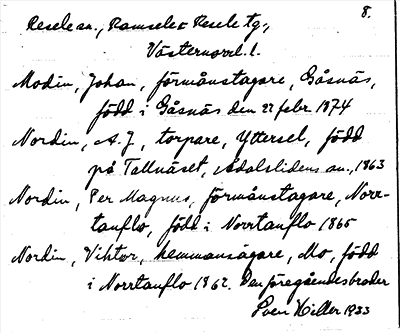 8.
Resele sn., Ramsele o Resele tg.,
Västernorrl. l.
Modin, Johan, förmånstagare, Gåsnäs,
född i Gåsnäs den 22 febr. 1874
Nordin, A. J, torpare, Yttersel, född
på Tallnäset, Ådalslidens sn., 1863
Nordin, Per Magnus, förmånstagare, Norr-
tanflo, född i Norrtanflo 1865
Nordin, Viktor, hemmansägare, Mo, född
i Norrtanflo 1862. Den föregåendes broder
Sven Hiller 1933